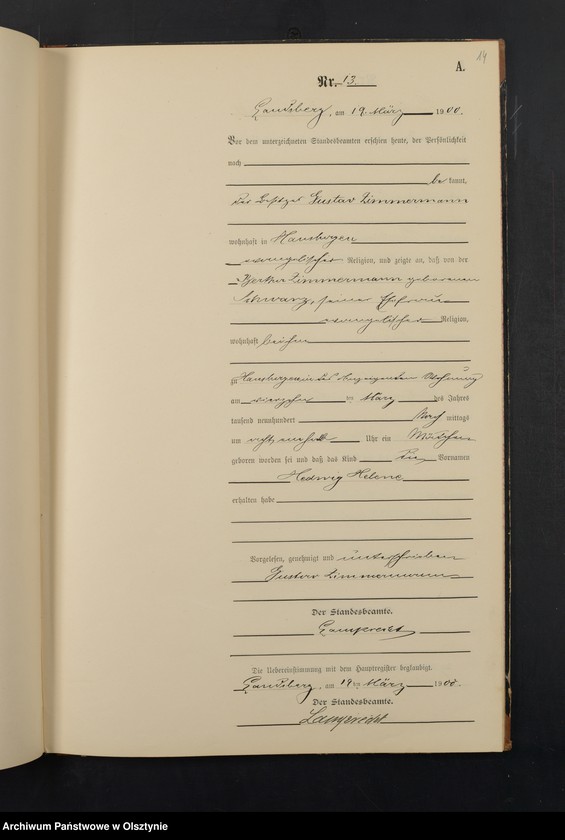 A.
14
Nr. 13.
Landsberg, am 19. März 1900.
Vor dem unterzeichneten Standesbeamten erschien heute, der Persönlichkeit
nach
be kannt,
der Besitzer Gustav Zimmermann
wohnhaft in
evangelischer Religion, und zeigte an, daß von der
Bertha Zimmermann geborenen
Schwarz, seiner Ehefrau
evangelischer Religion,
wohnhaft bei ihm
zu in des Anzeigenden Wohnung
am vierzehn ten März des Jahres
tausend neunhundert Nach mittags
um acht einhalb Uhr ein Mädchen
geboren worden sei und daß das Kind die Vornamen
Hedwig Helene
erhalten habe
Vorgelesen, genehmigt und unterschrieben
Gustav Zimmermann
Der Standesbeamte.
Die Uebereinstimmung mit dem Hauptregister beglaubigt.
Landsberg, am 19ten März 1900.
Der Standesbeamte.
Archiwum Państwowe w Olsztynie